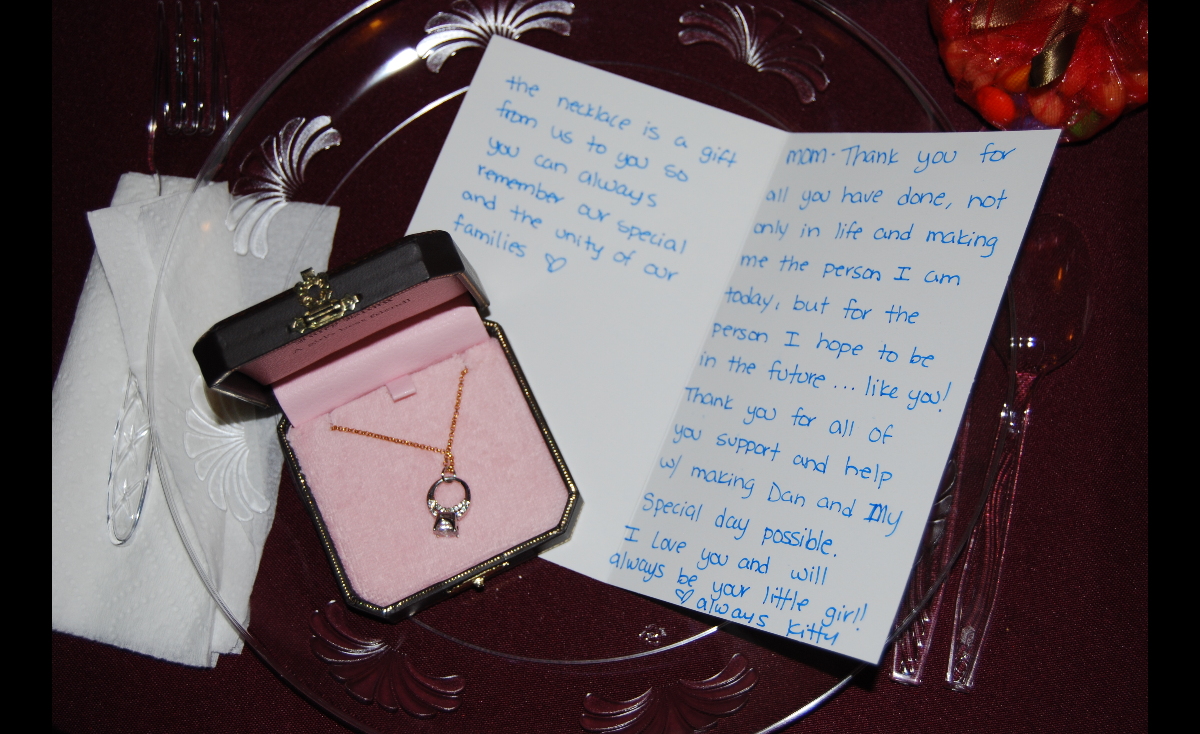 the necklace is a gift
from us to you so
you can always
remember our special
and the unity of our
families ♡
mom - Thank you for
all you have done, not
only in life and making
me the person I am
today, but for the
person I hope to be
in the future ... like you!
Thank you for all of
you support and help
w/ making Dan and My
Special day possible.
I love you and will
always be your little girl!
♡ always Kitty